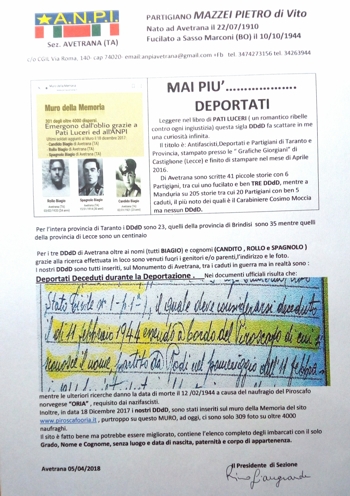 A.N.P.I.
Sez. AVETRANA (TA)
PARTIGIANO MAZZEI PIETRO di Vito
Nato ad Avetrana il 22/07/1910
Fucilato a Sasso Marconi (BO) il 10/10/1944
C/o CGIL Via Roma, 140 cap 74020 email.anpiavetrana@gmail.com +Fb tel. 3474273156 tel. 34263944
Muro della Memoria
Emergono dall'oblio grazie a
Pati Luceri ed all'ANPI
Rollo Biagio
Spagnolo Biagio
Candito Biagio
MAI PIU'..................
DEPORTATI
Leggendo nel libro di PATI LUCERI ( un romantico ribelle
contro ogni ingiustizia) questa sigla DDdD fa scattare in me
una curiosità infinita.
Il titolo è: Antifascisti,Deportati e Partigiani di Taranto e
Provincia, stampato presso le " Grafiche Giorgiani" di
Castiglione (Lecce) e finito di stampare nel mese di Aprile
2016.
Di Avetrana sono scritte 41 piccole storie con 6
Partigiani, tra cui uno fucilato e ben TRE DDdD, mentre a
Manduria su 205 storie tra cui 20 Partigiani con ben 5
caduti, il più noto dei quali è il Carabiniere Cosimo Moccia
ma nessun DDdD.
Per l'intera provincia di Taranto i DDdD sono 23, quelli della provincia di Brindisi sono 35 mentre quelli
della provincia di Lecce sono un centinaio
Per i tre DDdD di Avetrana oltre ai nomi (tutti BIAGIO) e cognomi (CANDITO , ROLLO e SPAGNOLO )
grazie alla ricerca effettuata in loco sono venuti fuori i genitori e/o parenti,l'indirizzo e le foto.
I nostri DDdD sono tutti inseriti, sul Monumento di Avetrana, tra i caduti in guerra ma in realtà sono :
Deportati Deceduti durante la Deportazione . Nei documenti ufficiali risulta che:
il quale deve considerarsi deceduto
l'11 febbraio 1944 essendo a bordo del Piroscafo di cui si
il nome partito da Rodi nel pomeriggio dell'11
mentre le ulteriori ricerche danno la data di morte il 12 /02/1944 a causa del naufragio del Piroscafo
norvegese "ORIA" , requisito dai nazifascisti.
Inoltre, in data 18 Dicembre 2017 i nostri DDdD, sono stati inseriti sul muro della Memoria del sito
www.piroscafooria.it , purtroppo su questo MURO, ad oggi, ci sono solo 309 foto su oltre 4000
naufraghi.
Il sito è fatto bene ma potrebbe essere migliorato, contiene l'elenco completo degli imbarcati con il solo
Grado, Nome e Cognome, senza luogo e data di nascita, paternità e corpo di appartenenza.
Avetrana 05/04/2018
Il Presidente di Sezione